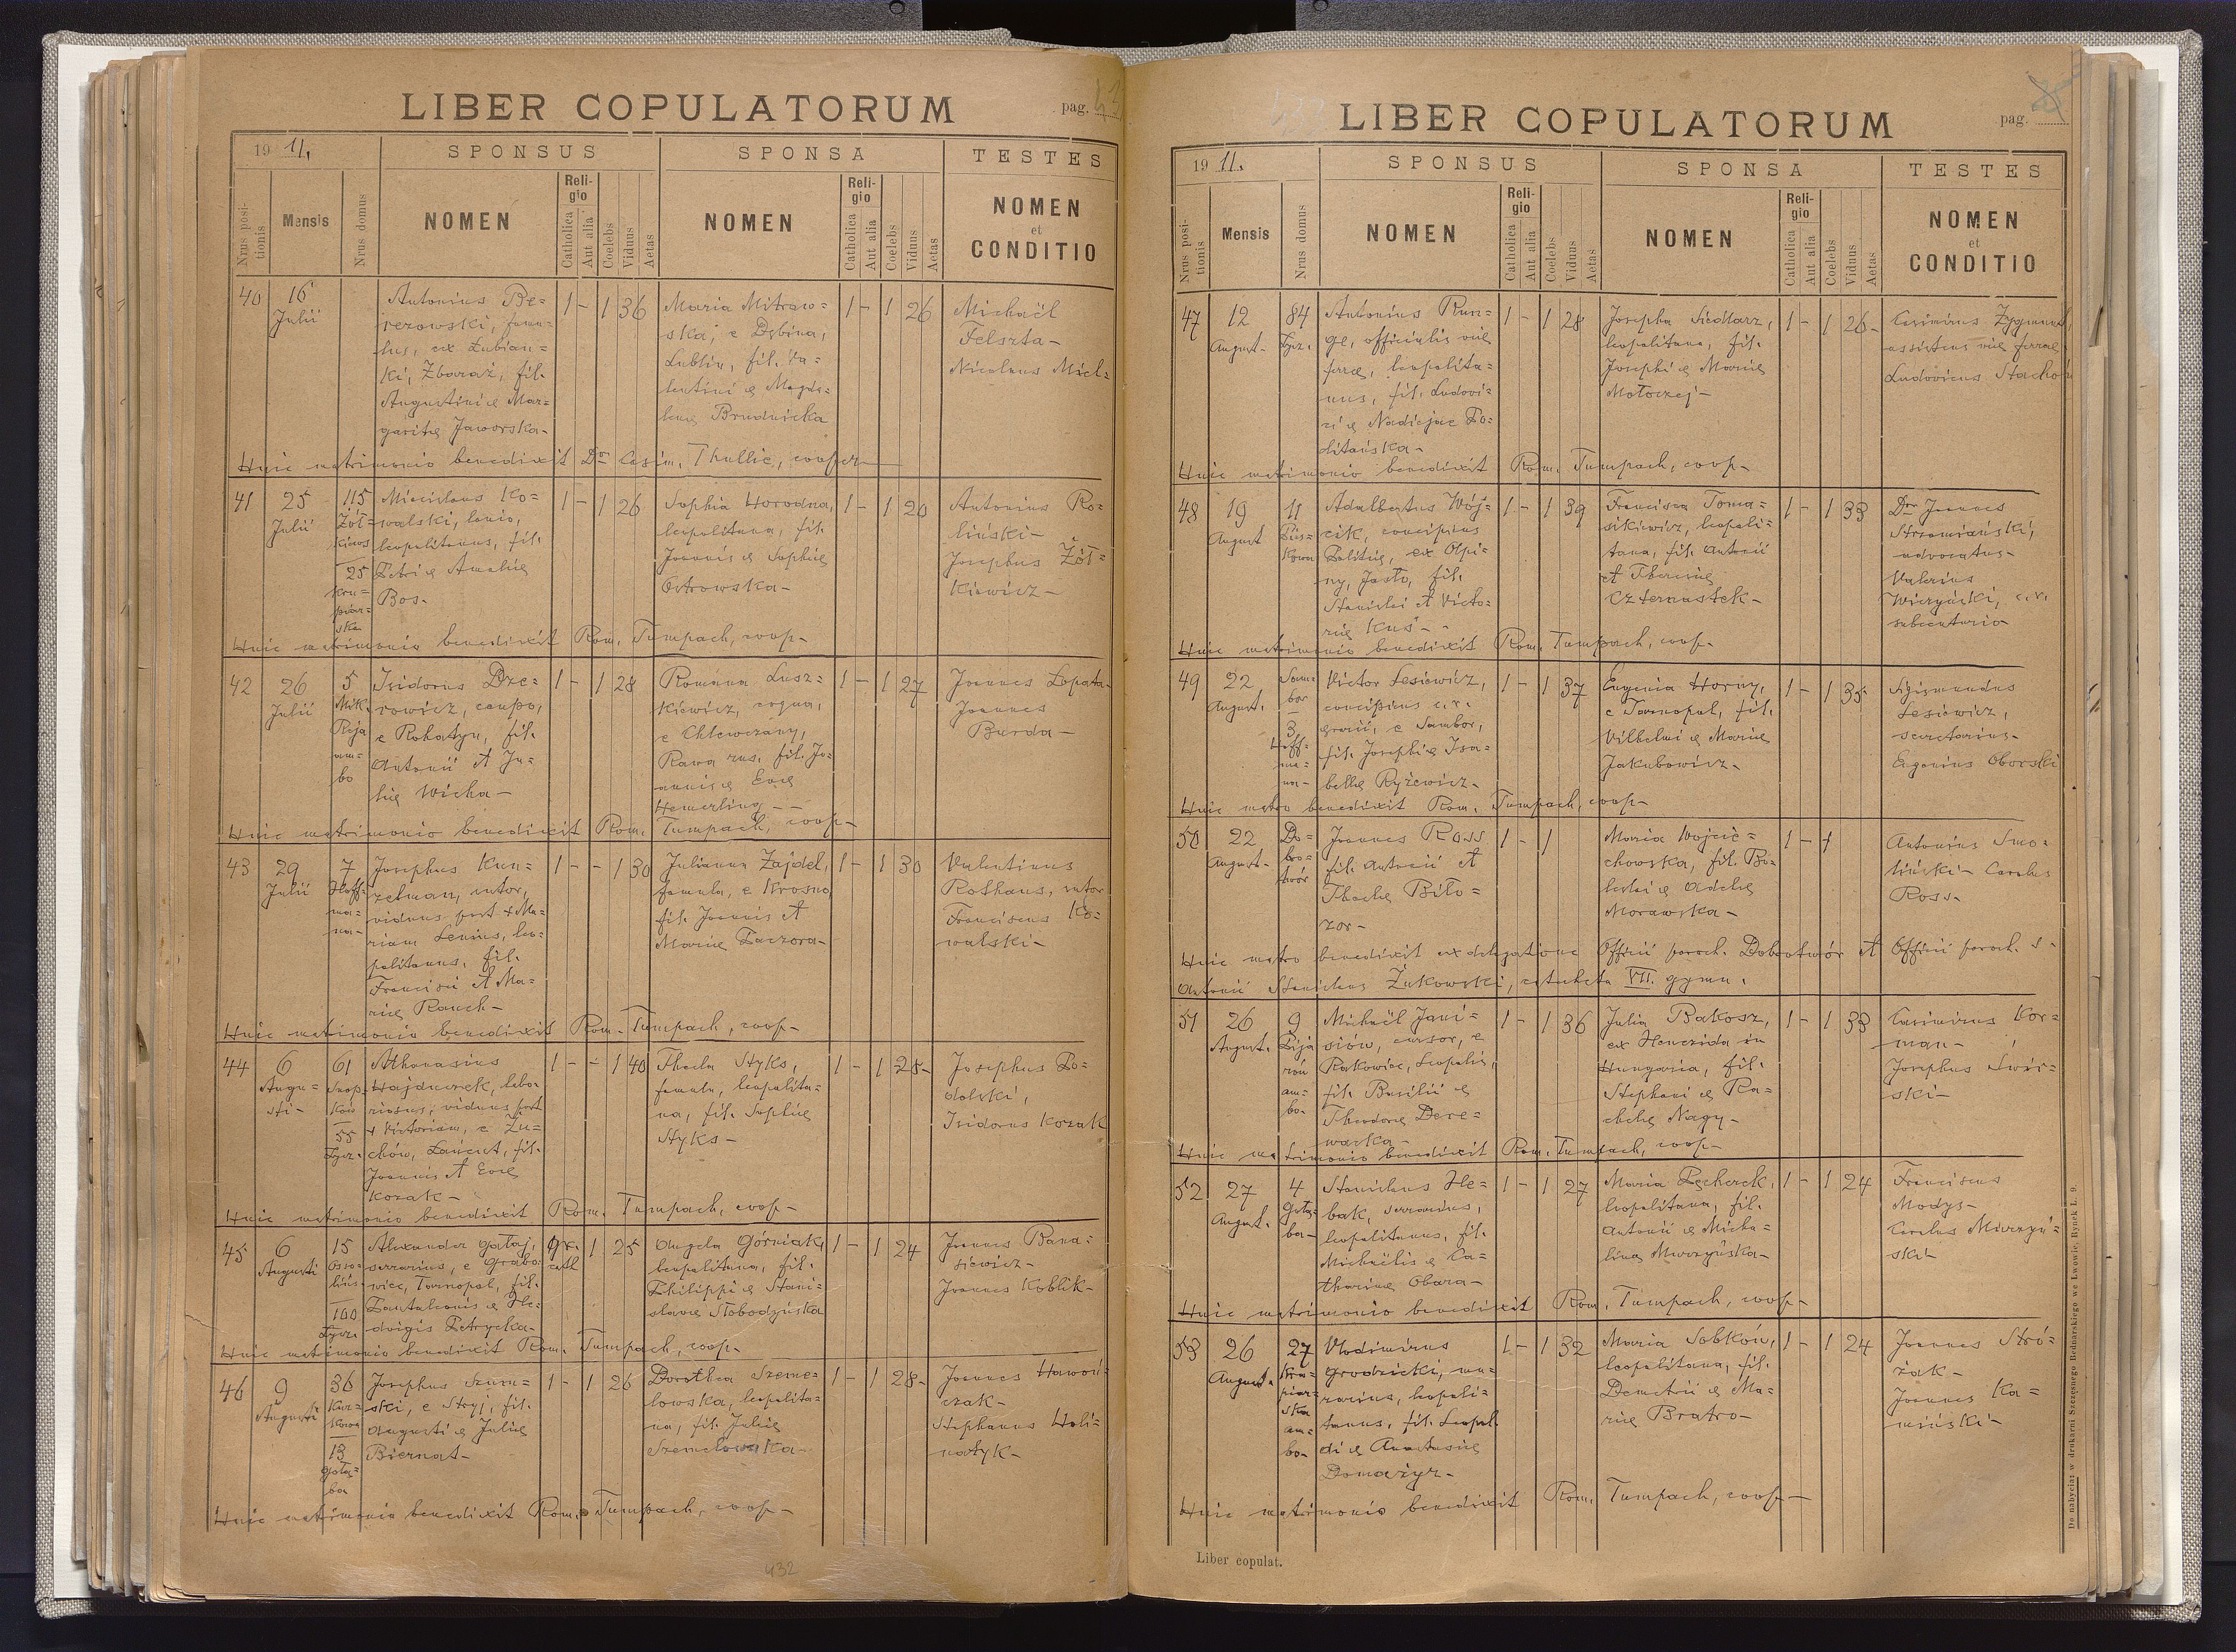 LIBER COPULATORUM
pag.
19 11.
SPONSUS
SPONSA
TESTES
Nrus positionis
Mensis
Nrus domus
NOMEN
Religio
Catholica
Aut alia
Coelebs
Viduus
Aetas
NOMEN
Religio
Catholica
Aut alia
Coelebs
Viduus
Aetas
NOMEN
et
CONDITIO
40
16
Julii
Antonius Be=
rezowski, famu=
lus, ex Łubian=
ki, Zbaraż, fil.
Augustini & Mar=
garitę Jaworska-
1 - 1 36
Maria Mitrow=
ska, e Dębina,
Lublin, fil. Va=
lentini & Magda=
lenę Brudnicka
1 - 1 26
Michaël
Felszta-
Nicolaus Mich=
Huic matrimonio benedixit Dr Casim. Thullie, cooper
41
25
Julii
115
Żół=
kiews
25
kru=
piar=
ska
Mieceslaus Ko=
walski, lanio,
leopolitanus, fil.
Petri & Amalię
Bos-
1 - 1 26
Sophia Horodna,
leopolitana, fil.
Joannis & Sophię
Ostrowska-
1 - 1 20
Antonius Ro=
liński-
Josephus Żół=
kiewicz-
Huic matrimonio benedixit Rom. Tumpach, coop-
42
26
Julii
5
Mik.
Reja
am=
bo
Isidorus Dze=
rowicz, caupo,
e Rohatyn, fil.
Antonii et Ju=
lię Wicha-
1 - 1 28
Romana Lusz=
kiewicz, coqua,
e Chlewczany,
Rawa rus. fil. Jo=
annis & Evę
Hemerling--
1 - 1 27
Joannes Łopata-
Joannes
Burda-
Huic matrimonio benedixit Rom. Tumpach, coop-
43
29
Julii
7
Hoff=
ma=
na-
Josephus Kun=
zelman, sutor,
viduus post + Ma=
riam Lenius, leo=
politanus, fil.
Francisci et Ma=
rię Rauch-
1 - - 1 30
Julianna Zajdel,
famula, e Krosno,
fil. Joannis et
Marię Paczora-
1 - 1 30
Valentinus
Rothaus, sutor
Franciscus Ko=
walski-
Huic matrimonio benedixit Rom. Tumpach, coop-
44
6
Augu=
sti-
61
Snop=
ków
55
Łycz.
Athanasius
Hajduczek, labo=
riosus, viduus post
+ Victoriam, e Żu=
chów, Łańcut, fil.
Joannis et Evę
Kozak-
1 - - 1 40
Thecla Styks,
famula, leopolita=
na, fil. Sophię
Styks-
1 - 1 28-
Josephus Po=
dolski,
Isidorus Kozak
Huic matrimonio benedixit Rom. Tumpach, coop-
45
6
Augusti
15
Osso=
lińs=
100
Łycz.
Alexander Gałaj,
serrarius, e Grabo=
wiec, Tarnopol, fil.
Pantaleonis & He=
dvigis Petrycka-
gr. catl 1 25
Angela Górniak,
leopolitana, fil.
Philippi & Stani=
slavę Słobodzińska
1 - 1 24
Joannes Bana=
siewicz-
Joannes Koblik-
Huic matrimonio benedixit Rom. Tumpach, coop-
46
9
Augusti
36
Kur=
kowa
13
Gołę=
ba
Josephus Szum=
ski, e Stryj, fil.
Augusti & Julię
Biernat-
1 - 1 26
Dorothea Szeme=
lowska, leopolita=
na, fil. Julię
Szemelowska-
1 - 1 28-
Joannes Hawoń=
czak-
Stephanus Holi=
natyk-
Huic matrimonio benedixit Rom. Tumpach, coop-
432
LIBER COPULATORUM
pag.
19 11.
SPONSUS
SPONSA
TESTES
Nrus positionis
Mensis
Nrus domus
NOMEN
Religio
Catholica
Aut alia
Coelebs
Viduus
Aetas
NOMEN
Religio
Catholica
Aut alia
Coelebs
Viduus
Aetas
NOMEN
et
CONDITIO
47
12
August-
84
Łycz.
Antonius Run=
ge, officialis vię
ferrę, leopolita=
nus, fil. Ludovi=
ci & Nadiejae Po=
litańska-
1 - 1 28
Josepha Siedlarz,
leopolitana, fil.
Josephi & Marię
Mołoczej-
1 - 1 26-
Casimirus Zygmunt
assistens vię ferrae
Ludovicus Stachoń
Huic matrimonio benedixit Rom. Tumpach, coop-
48
19
August
11
Pias=
kowa
Adalbertus Wój=
cik, concipius
Politię, ex Olpi=
ny, Jasło, fil.
Stanislai et Victo=
rię Kuś--
1 - 1 39
Francisca Toma=
sikiewicz, leopoli=
tana, fil. Antonii
et Theresię
Czternastek-
1 - 1 33
Dr Joannes
Strzemieński,
advocatus-
Valerius
Wiczyński, c.r.
subcentario
Huic matrimonio benedixit Rom. Tumpach, coop-
49
22
August.
Sam=
bor
3
Hoff=
ma=
na-
Victor Lesiewicz,
concipius c.r.
ęrarii, e Sambor,
fil. Josephi & Isa=
bellę Ryżewicz-
1 - 1 37
Eugenia Horny,
e Tarnopol, fil.
Vilhelmi & Marię
Jakubowicz-
1 - 1 35
Sigismundus
Lesiewicz,
secretarius-
Eugenius Oborski
Huic matro benedixit Rom. Tumpach, coop-
50
22
August-
Do=
bro=
twór
Joannes Ross
fil. Antonii et
Theclę Biło=
zor-
1 - 1
Maria Wojcie=
chowska, fil. Bo=
leslai & Adelę
Morawska-
1 - 1
Antonius Smo=
liński- Carolus
Ross-
Huic matro benedixit ex delegatione Officii paroch. Dobrotwór et Officii paroch. S.
Antonii Stanislaus Żukowski, catecheta VII. gymn.
51
26
August.
9
Pija
rów
am=
bo-
Michaël Jani=
siów, cursor, e
Rakowiec, Leopolis,
fil. Basilii &
Theodorę Dere=
wacka-
1 - 1 36
Julia Bakosz,
ex Henczida in
Hungaria, fil.
Stephani & Ra=
chelę Nagy-
1 - 1 33
Casimirus Kor=
man-
Josephus Świr=
ski-
Huic matrimonio benedixit Rom. Tumpach, coop-
52
27
August.
4
Gołę=
ba-
Stanislaus He=
bak, serrarius,
leopolitanus, fil.
Michaëlis & Ca=
tharinę Obara-
1 - 1 27
Maria Pęcherek,
leopolitana, fil.
Antonii & Micha=
linę Murzyńska-
1 - 1 24
Franciscus
Modys-
Carolus Murzyń=
ski-
Huic matrimonio benedixit Rom. Tumpach, coop-
53
26
August.
27
Kru=
piar=
ska
am=
bo-
Vlodimirus
Grodzicki, mu=
rarius, leopoli=
tanus, fil. Leopol
di & Anastasię
Domażyr-
1 - 1 32
Maria Sobków,
leopolitana, fil.
Demetrii & Ma=
rię Bratro-
1 - 1 24
Joannes Stró=
żak-
Joannes Ka=
miński-
Huic matrimonio benedixit Rom. Tumpach, coop-
Liber copulat.
Do nabycia w drukarni Szczęsnego Bednarskiego we Lwowie, Rynek L. 9.